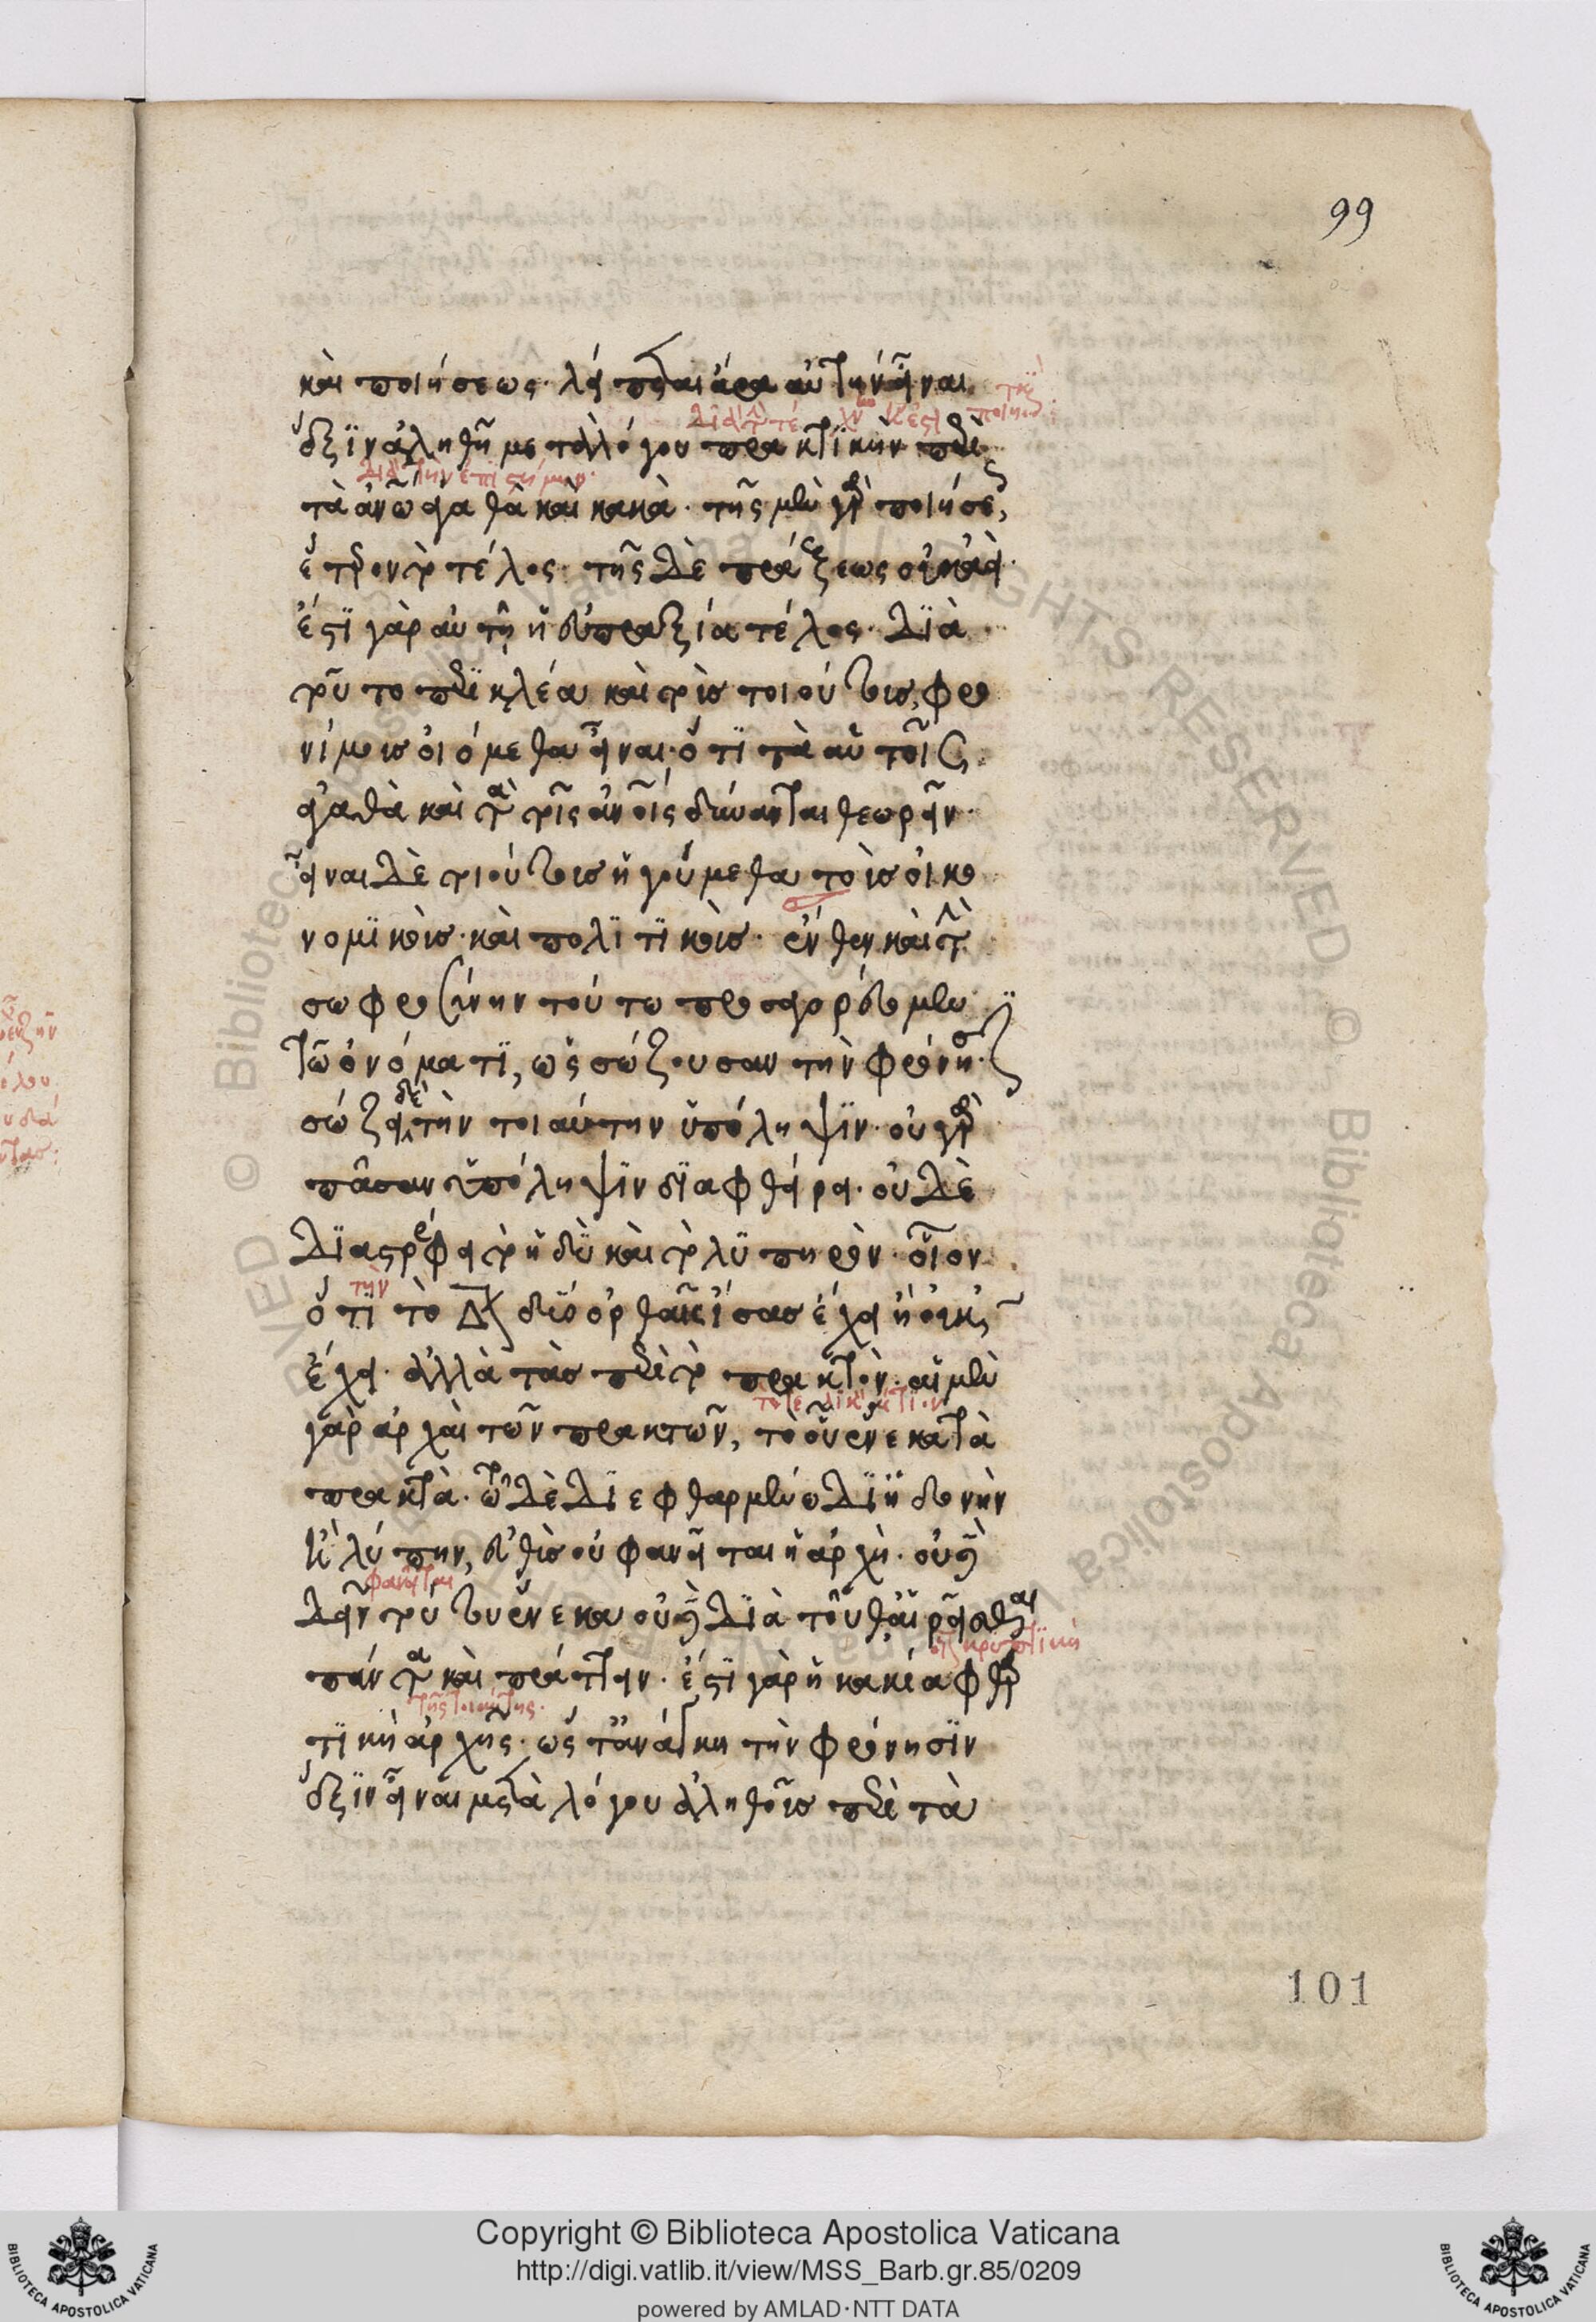 99
καὶ ποιήσεως· λείπεται ἄρα αὐτὴν εἶναι
ἕξιν ἀληθῆ μετὰ λόγου πρακτικὴν περὶ
διὰ τὴν ἐπιστήμην·
τὰ ἀνῶ ἀγαθὰ καὶ κακὰ· τῆς μὲν γὰρ ποιήσεως
ἕτερον τὸ τέλος· τῆς δὲ πράξεως οὐκ ἀεὶ·
ἔστι γὰρ αὐτὴ ἡ εὐπραξία τέλος· διὰ
τοῦτο περικλέα καὶ τοὺς τοιούτους φρο
νίμους οἰόμεθα εἶναι· ὅτι τὰ αὑτοῖς
ἀγαθὰ καὶ τὰ τοῖς ἀνοις δύνανται θεωρεῖν·
εἶναι δὲ τοιούτους ἡγούμεθα τοὺς οἰκο
νομικοὺς· καὶ πολιτικοὺς· ἔνθεν καὶ τὴν
σωφροσύνην τούτω προσαγορεύομεν
τῶ ὀνόματι, ὡς σώζουσαν τὴν φρόνησιν·
σώζει δὲ τὴν τοιαύτην ὑπόληψιν· οὐ γὰρ
πᾶσαν ὑπόληψιν διαφθείρει· οὐδὲ
διαστρέφει τὸ ἡδὺ καὶ τὸ λυπηρὸν· οἷον
τὴν
ὅτι τὸ Δ δύο ὀρθαῖς ἴσας ἔχει ἢ οὐκ
ἔχει· ἀλλὰ τὰς περὶ τὸ πρακτὸν· αἱ μὲν
γὰρ ἀρχαὶ τῶν πρακτῶν, τὸ οὗ ἕνεκα τὰ
πρακτὰ· τῶ δὲ διεφθαρμένω δι' ἡδονὴν
ἢ λύπην, εὐθὺς οὐ φανεῖται ἡ ἀρχὴ· οὐδὲ
φανεῖται
δεῖν τούτου ἕνεκα οὐδὲ διὰ τοῦθ' αἱρεῖσθαι
πάντα καὶ πράττειν· ἔστι γὰρ ἡ κακία φθαρ
τῆς τοιαύτης·
τικὴ ἀρχῆς· ὥστ' ἀνάγκη τὴν φρόνησιν
ἕξιν εἶναι μετὰ λόγου ἀληθοῦς περὶ τὰ
101
Copyright © Biblioteca Apostolica Vaticana
http://digi.vatlib.it/view/MSS_Barb.gr.85/0209
powered by AMLAD·NTT DATA